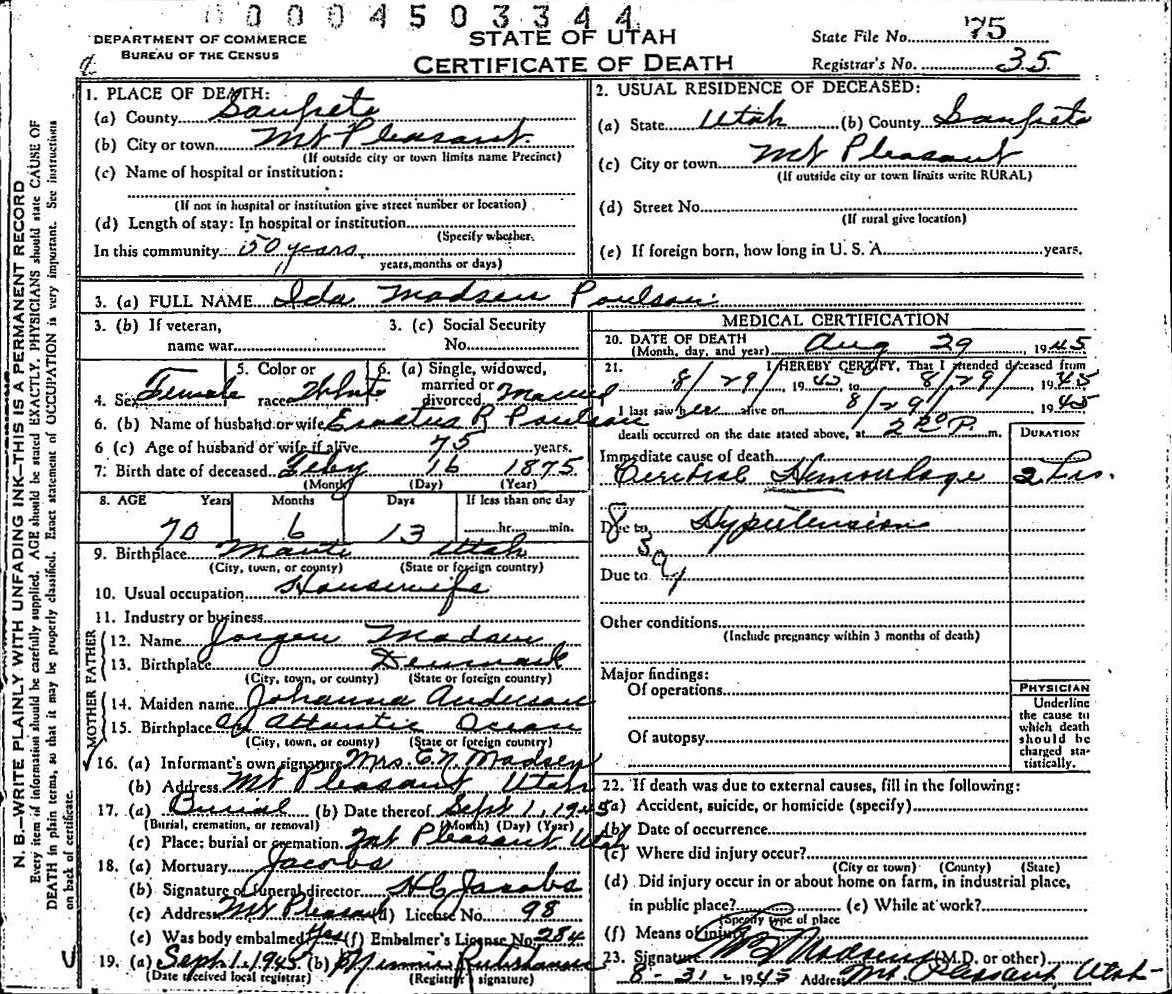 0 0 0 0 4 5 0 3 3 4 4
DEPARTMENT OF COMMERCE
BUREAU OF THE CENSUS
STATE OF UTAH
CERTIFICATE OF DEATH
State File No. 75
Registrar's No. 35
N. B.—WRITE PLAINLY WITH UNFADING INK—THIS IS A PERMANENT RECORD
Every item of information should be carefully supplied. AGE should be stated EXACTLY. PHYSICIANS should state CAUSE OF
DEATH in plain terms, so that it may be properly classified. Exact statement of OCCUPATION is very important. See instructions
on back of certificate.
1. PLACE OF DEATH:
(a) County Sanpete
(b) City or town Mt Pleasant.
(If outside city or town limits name Precinct)
(c) Name of hospital or institution:
(If not in hospital or institution give street number or location)
(d) Length of stay: In hospital or institution
(Specify whether
In this community 50 years
years, months or days)
2. USUAL RESIDENCE OF DECEASED:
(a) State Utah (b) County Sanpete
(c) City or town Mt Pleasant
(If outside city or town limits write RURAL)
(d) Street No.
(If rural give location)
(e) If foreign born, how long in U. S. A. years.
3. (a) FULL NAME Ida Madsen Poulson
3. (b) If veteran, name war
3. (c) Social Security No.
4. Sex Female
5. Color or race White
6. (a) Single, widowed, married or divorced Married
6. (b) Name of husband or wife Erastus R Poulson
6 (c) Age of husband or wife if alive 75 years.
7. Birth date of deceased Feby 16 1875
(Month) (Day) (Year)
8. AGE Years Months Days If less than one day
70 6 13 hr. min.
9. Birthplace Manti Utah
(City, town, or county) (State or foreign country)
10. Usual occupation Housewife
11. Industry or business
FATHER
12. Name Jorgen Madsen
13. Birthplace Denmark
(City, town, or county) (State or foreign country)
MOTHER
14. Maiden name Johanna Anderson
15. Birthplace Atlantic Ocean
(City, town, or county) (State or foreign country)
16. (a) Informant's own signature Mrs. C. N. Madsen
(b) Address Mt Pleasant Utah
17. (a) Burial (b) Date thereof Sept 1, 1945
(Burial, cremation, or removal) (Month) (Day) (Year)
(c) Place: burial or cremation Mt Pleasant Utah
18. (a) Mortuary Jacobs
(b) Signature of funeral director H C Jacobs
(c) Address Mt Pleasant (d) License No. 98
(e) Was body embalmed Yes (f) Embalmer's License No. 284
19. (a) Sept. 1. 1945 (b) Minnie
(Date received local registrar) (Registrar signature)
MEDICAL CERTIFICATION
20. DATE OF DEATH
(Month, day, and year) Aug 29 1945
21. I HEREBY CERTIFY, That I attended deceased from
8/29/ 1945 to 8/29/ 1945
I last saw her alive on 8/29/ 1945
death occurred on the date stated above, at 2 20 P. m.
DURATION
Immediate cause of death
Cerebral Hemorrhage 2 hrs.
Due to Hypertension
83a
Due to
Other conditions
(Include pregnancy within 3 months of death)
Major findings:
Of operations
Of autopsy
PHYSICIAN
Underline
the cause to
which death
should be
charged sta-
tistically.
22. If death was due to external causes, fill in the following:
(a) Accident, suicide, or homicide (specify)
(b) Date of occurrence
(c) Where did injury occur?
(City or town) (County) (State)
(d) Did injury occur in or about home on farm, in industrial place,
in public place? (e) While at work?
(Specify type of place
(f) Means of injury
23. Signature Madsen (M.D. or other)
8-31- 1945 Address Mt. Pleasant Utah